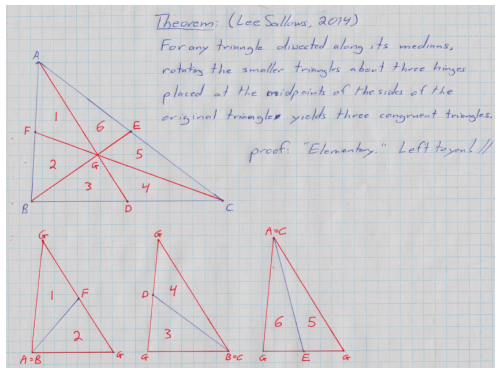 Theorem: (Lee Sallows, 2014)
For any triangle dissected along its medians,
rotating the smaller triangles about three hinges
placed at the midpoints of the sides of the
original triangle yields three congruent triangles.
proof: "Elementary." Left to you! //
A
1
6
E
F
5
G
2
3
4
B
D
C
G
1
F
2
A=B
G
G
D
4
3
G
B=C
A=C
6
5
G
E
G